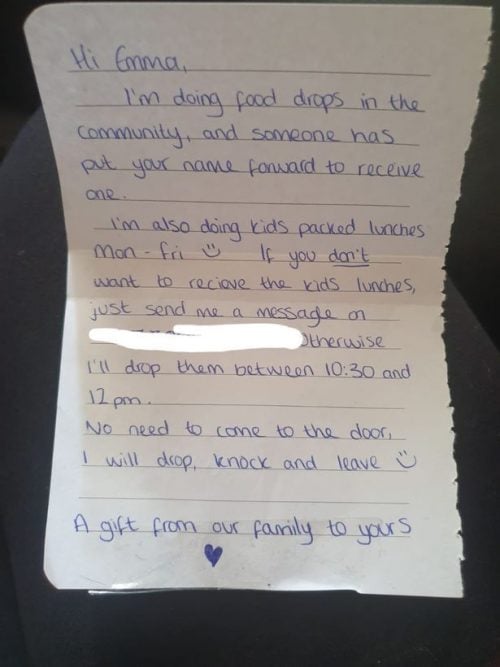 Hi Emma,
I'm doing food drops in the
community, and someone has
put your name forward to receive
one.
I'm also doing kids packed lunches
Mon - Fri ☺ If you don't
want to reciove the kids lunches,
just send me a message on
Otherwise
I'll drop them between 10:30 and
12pm.
No need to come to the door,
I will drop, knock and leave ☺
A gift from our family to yours
♥